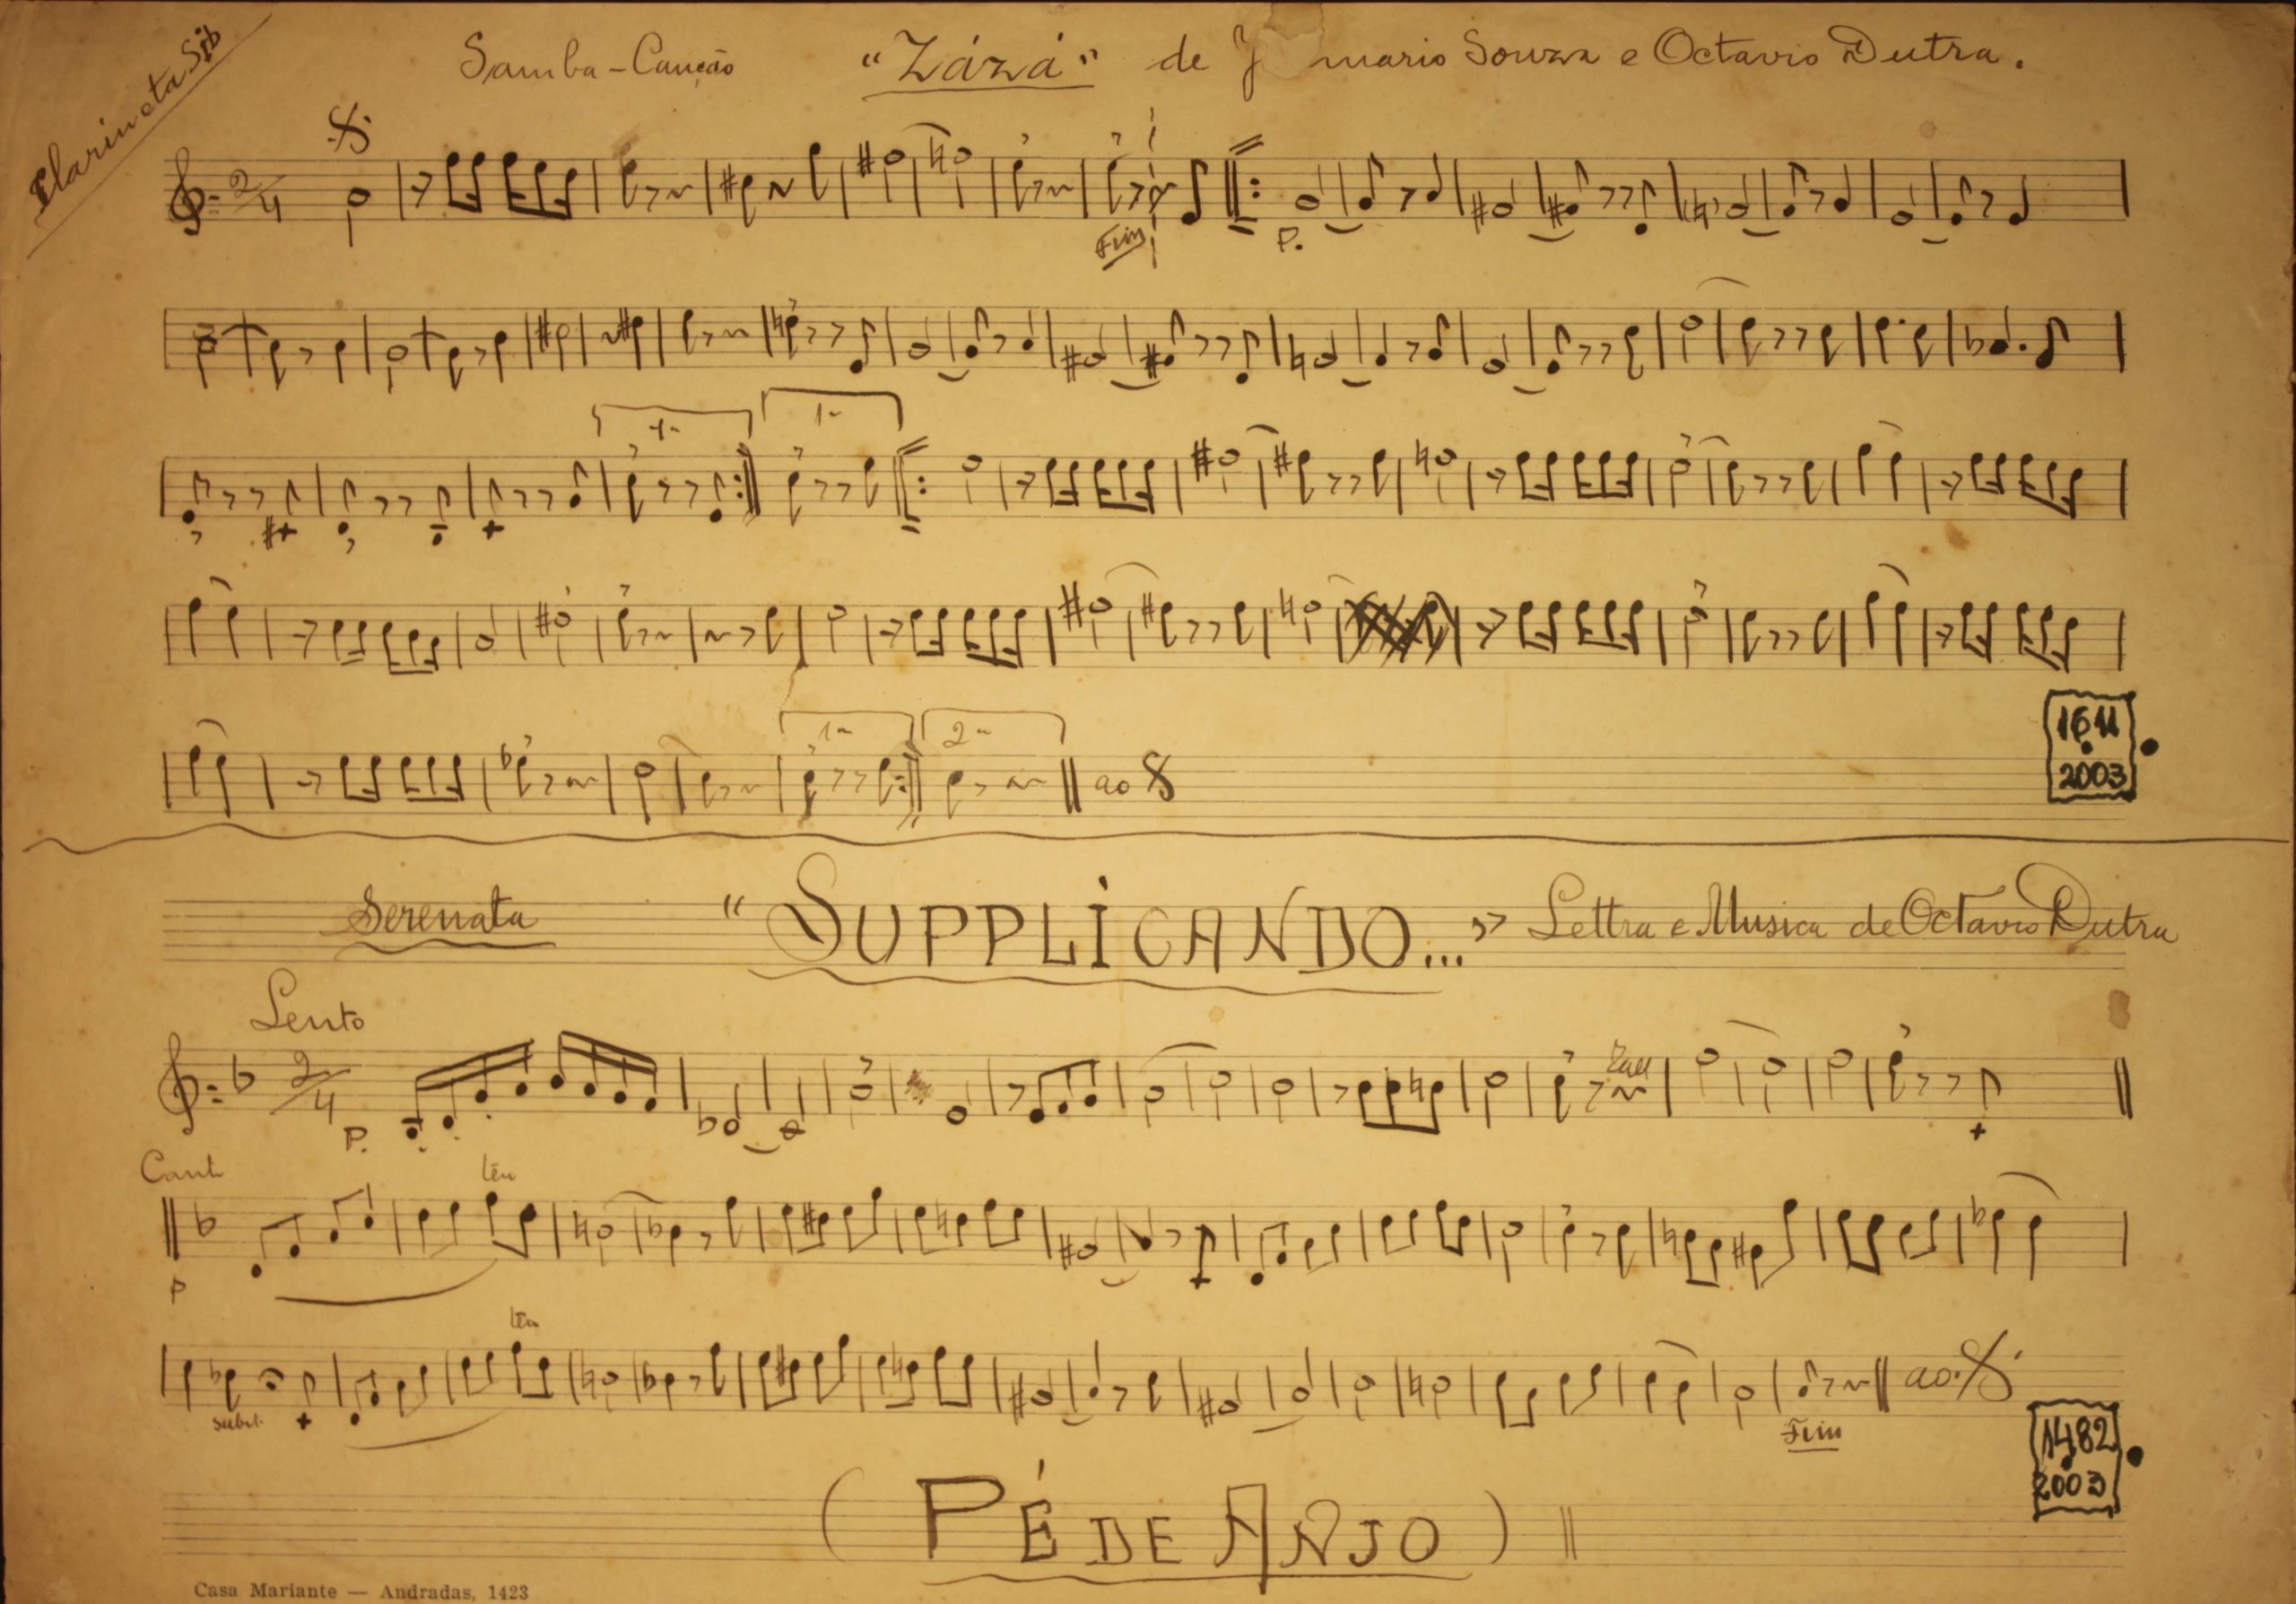 Clarineta Sib
Samba-Canção "Zázá" de J nuario Souza e Octavio Dutra.
2/4
Fim
P.
1a
1a
1a 2a
ao
1611
2003
Serenata "SUPPLICANDO..." Lettra e Musica de Octavio Dutra
Lento
2/4
P.
Rall
Cant
tên
P
tên
subit.
ao
Fim
1482
2003
(PÉ DE ANJO)
Casa Mariante — Andradas, 1423